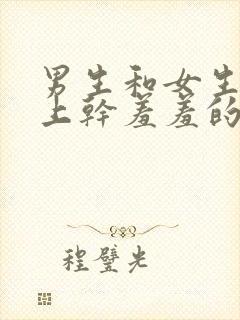 男生和女生
上幹羞羞的
程璧光